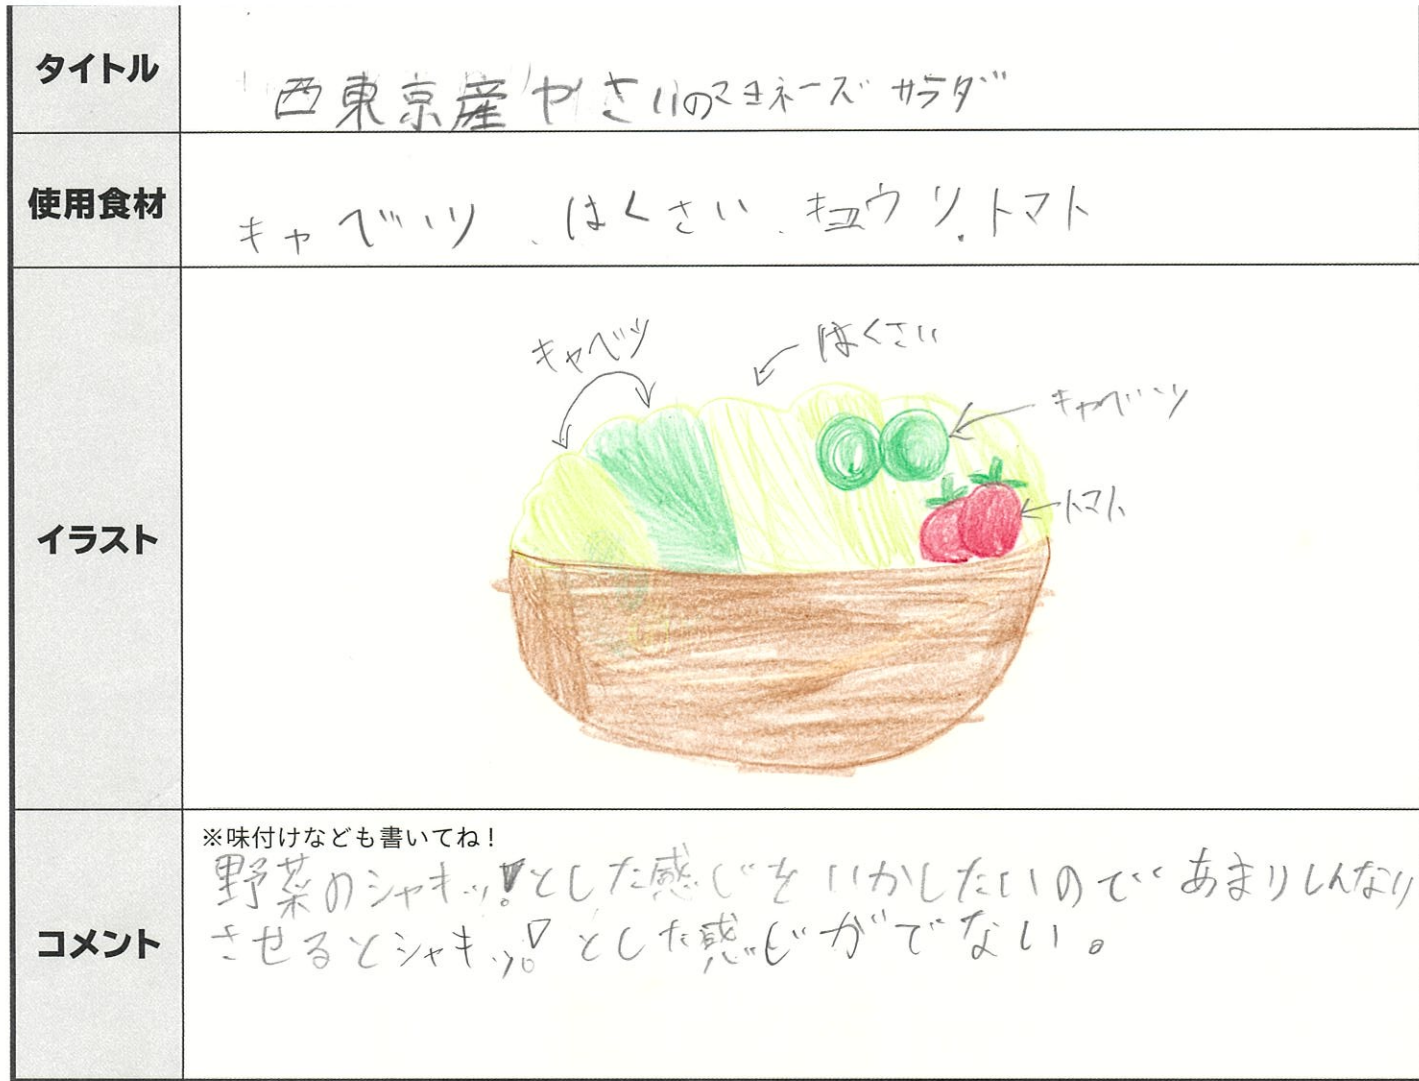 タイトル
西東京産やさいのマヨネーズサラダ
使用食材
キャベツ、はくさい、キュウリ、トマト
イラスト
キャベツ
はくさい
キャベツ
トマト
コメント
※味付けなども書いてね！
野菜のシャキッ!とした感じをいかしたいのであまりしんなり
させるとシャキッ!とした感じがでない。